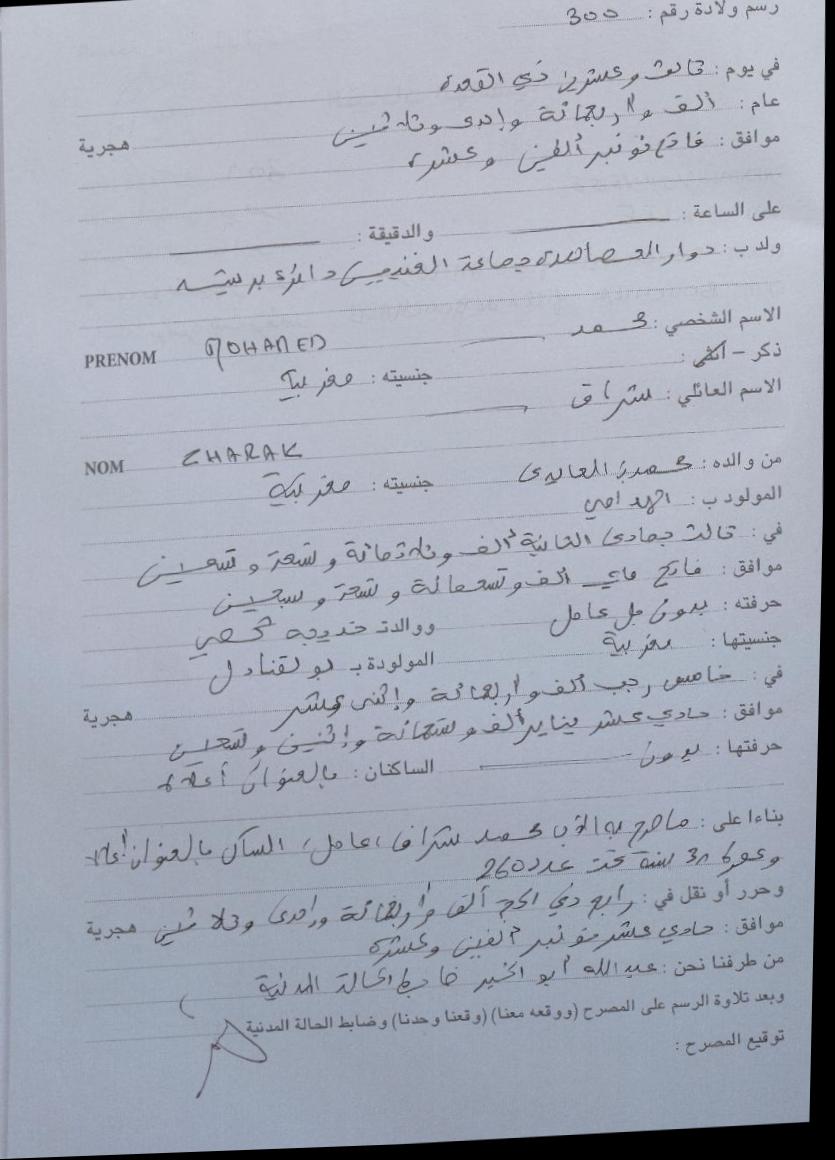 رسم ولادة رقم : 300
في يوم : ثالث وعشرين ذي القعدة
عام : ألف وأربعمائة وإحدى وثلاثين هجرية
موافق : فاتح نونبر ألفين وعشرة
على الساعة : والدقيقة :
ولد ب : دوار جماعة دائرة
الاسم الشخصي : محمد
PRENOM MOHAMED
ذكر - أنثى : جنسيته : مغربية
الاسم العائلي : شراق
NOM CHARAK
من والده : محمد بن جنسيته : مغربية
المولود ب :
في : ثالث جمادى الثانية ألف وثلاثمائة وتسعة وتسعين
موافق : فاتح ماي ألف وتسعمائة وتسعة وسبعين
حرفته : عامل ووالدته خديجة
جنسيتها : مغربية المولودة ب
في : خامس رجب ألف وأربعمائة وإثنى عشر هجرية
موافق : حادي عشر يناير ألف وتسعمائة وإثنين وتسعين
حرفتها : بدون الساكنان : بالعنوان أعلاه
بناءا على : ما صرح به الأب محمد شراق، عامل، الساكن بالعنوان أعلاه
وعمره 31 سنة تحت عدد 260
وحرر أو نقل في : رابع ذي الحجة ألف وأربعمائة وإحدى وثلاثين هجرية
موافق : حادي عشر نونبر ألفين وعشرة
من طرفنا نحن : عبد الله أبو الخير ضابط الحالة المدنية
وبعد تلاوة الرسم على المصرح (ووقعه معنا) (وقعنا وحدنا) وضابط الحالة المدنية
توقيع المصرح :